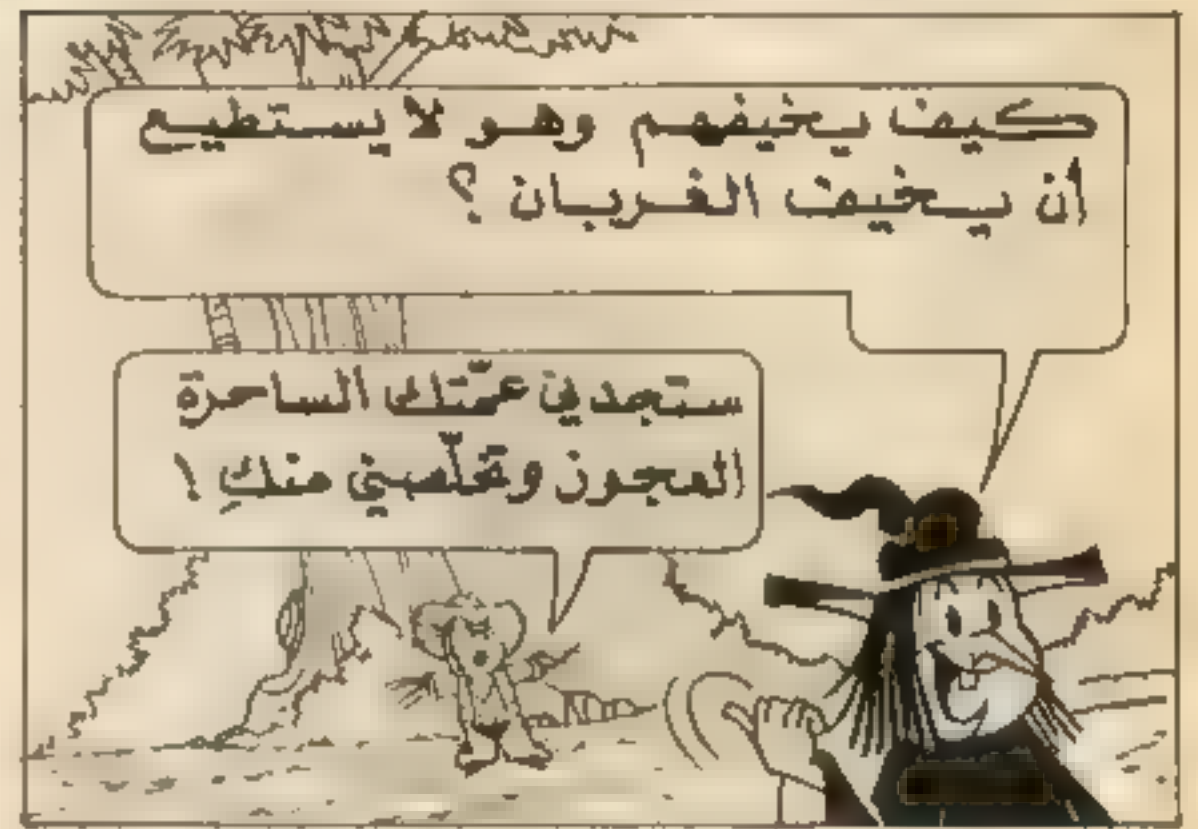 كيف يخيفهم وهو لا يستطيع
أن يخيف الغربان ؟
ستجدني عمّتك الساحرة
العجوز وتخلّصني منكِ !